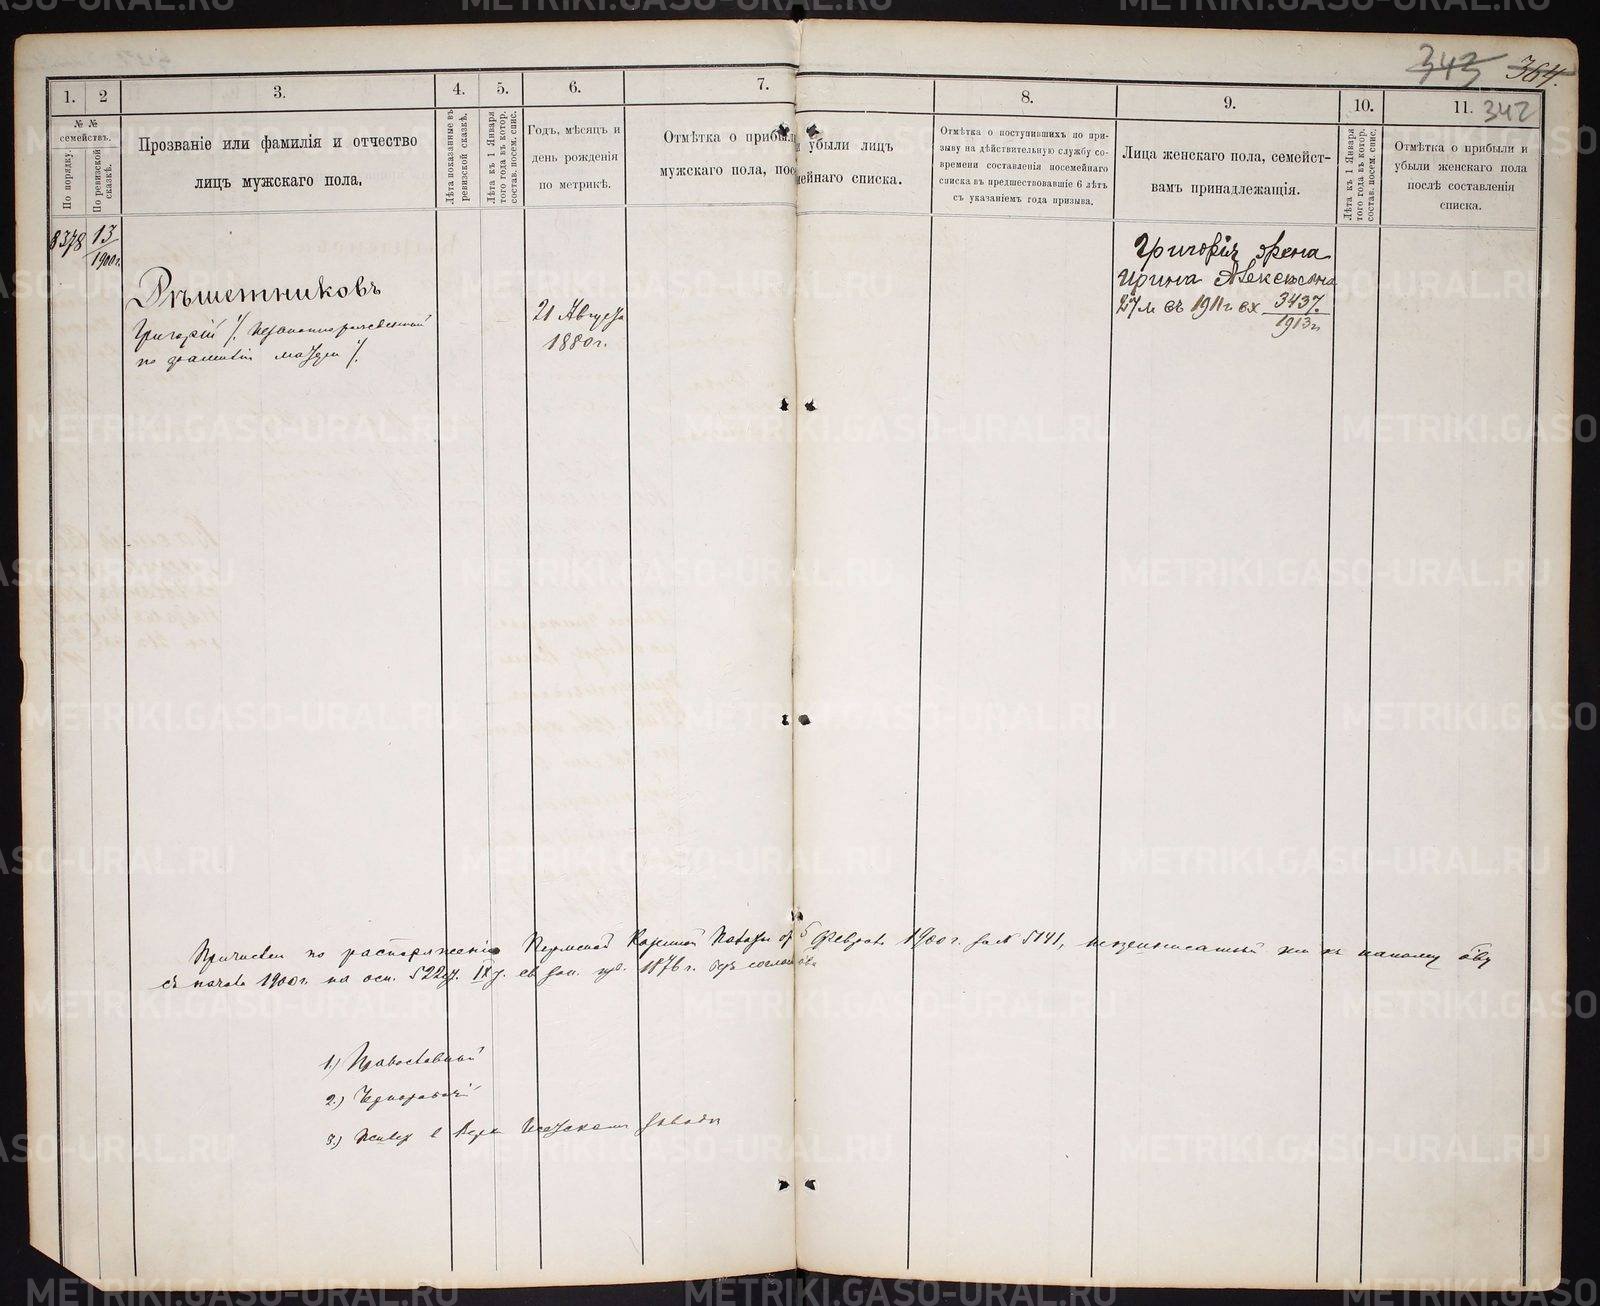 343 364.
1. 2 3. 4. 5. 6. 7. 8. 9. 10. 11. 342
№ №
семействъ.
По порядку.
По ревизской
сказкѣ.
Прозваніе или фамилія и отчество
лицъ мужскаго пола.
Лѣта показанные въ
ревизской сказкѣ.
Лѣта къ 1 Января
того года въ котор.
состав. посем. спис.
Годъ, мѣсяцъ и
день рожденія
по метрикѣ.
Отмѣтка о прибыли убыли лицъ
мужскаго пола, посемейнаго списка.
Отмѣтка о поступившихъ по при-
зыву на дѣйствительную службу со-
времени составленія посемейнаго
списка въ предшествовавшіе 6 лѣтъ
съ указаніемъ года призыва.
Лица женскаго пола, семейст-
вамъ принадлежащія.
Лѣта къ 1 Января
того года въ котор.
состав. посем. спис.
Отмѣтка о прибыли и
убыли женскаго пола
послѣ составленія
списка.
8378 13/1900г.
Рѣшетниковъ
Григорій /. незаконнорожденный
по фамиліи матери /.
21 Августа
1880г.
Григорія жена
Ирина Алексѣевна
27 л съ 1911г вх 3437./1913г
Причисленъ по распоряженію Пермской Казенной Палаты от 5 Февраля 1900г. за № 5141, незаписанный ни къ какому
съ начала 1900г. на осн. 522 ст. IX т. св зак. изд. 1876г. безъ согласія
1.) Православный
2.) Чернорабочій
3.) Живетъ в Верх Исетскомъ заводѣ
METRIKI.GASO-URAL.RU